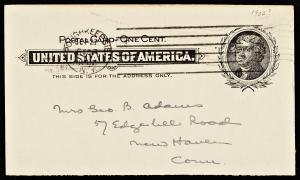 1902?
POSTAL CARD—ONE CENT.
UNITED STATES OF AMERICA.
THIS SIDE IS FOR THE ADDRESS ONLY.
Mrs Geo B. Adams
57 Edgehill Road
New Haven
Conn.